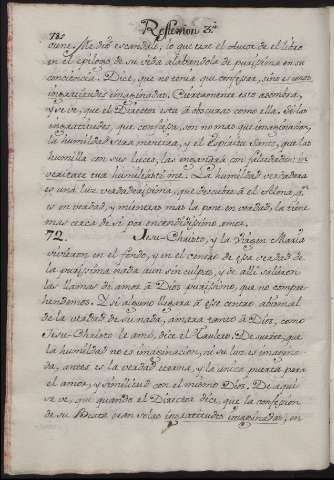 78.
Reflexion 3ª.
viene. Me dió escandalo, lo que trae el Autor de el libro
en el epilogo de su vida alabandola de purissima en su
conciencia. Dice, que no tenia que confesar, sino es unas
ingratitudes imaginadas. Ciertamente esto asombra,
y se ve, que el Director esta à obscuras como ella. Si las
ingratitudes, que confesaba, son no mas que imaginacion,
la humildad sera mentira, y el Espiritu Santo, que las
humilla con sus luces, las engañará con falsedad: in
veritate tua humiliasti me. La humildad verdadera
es una luz verdaderissima, que descubre à el Alma,
es en verdad, y mientras mas la pone en verdad, la tiene
mas cerca de si por encendidissimo amor.
72. Jesu-Christo, y la Virgen Maria
vivieron en el fondo, y en el centro de esa verdad de
la purissima nada aun sin culpas, y de allí salieron
las llamas de amor à Dios purissimo, que no compre-
hendemos. Y si alguno llegara à ese centro abismal
de la verdad de su nada, amara tanto à Dios, como
Jesu-Christo le amó, dice el Taulero. De suerte, que
la humildad no es imaginacion, ni su luz es imagina-
da, antes es la verdad eterna, y la unica puerta para
el amor, y similitud con el mismo Dios. De aqui
se ve, que quando el Director dice, que la confesion
de su Beata eran solas ingratitudes imaginadas, en